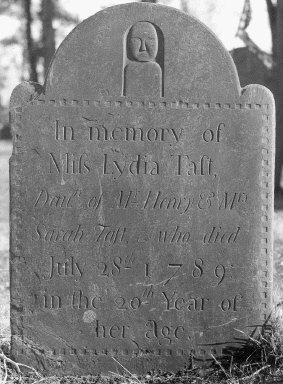 In memory of
Miſs Lydia Taft,
Daut. of Mr. Henry & Mrs.
Sarah Taft, who died
July 28th 1789
in the 20th Year of
her Age.